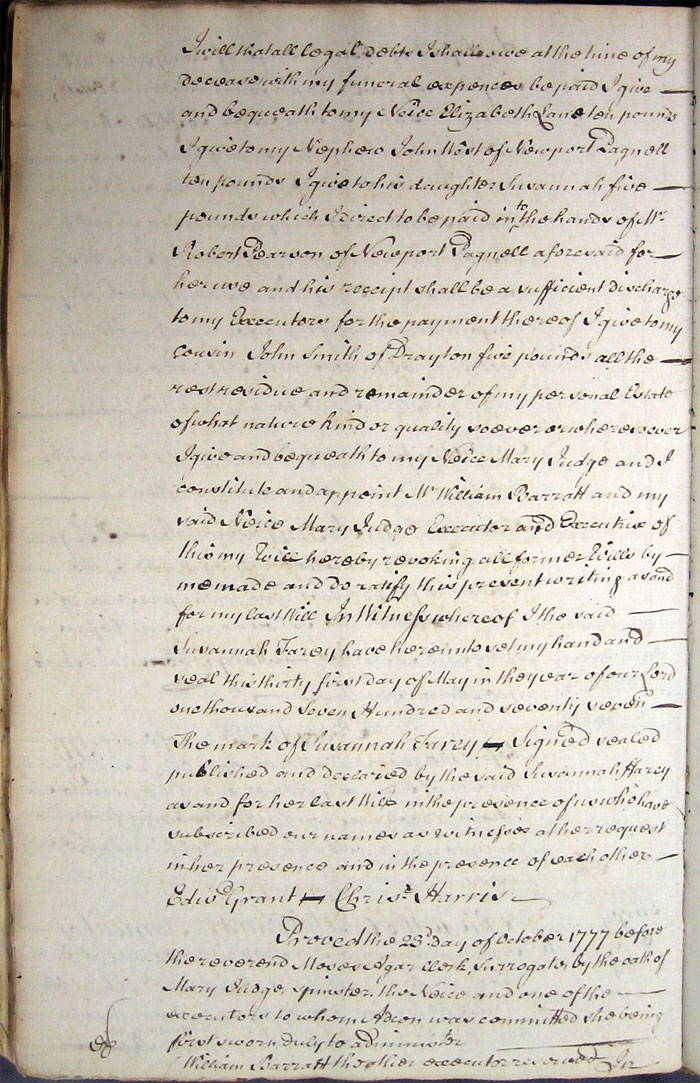 I will that all legal debts I shall owe at the time of my
decease with my funeral expences be paid I give
and bequeath to my Neice Elizabeth Lane ten pounds
I give to my Nephew John West of Newport Pagnell
ten pounds I give to his daughter Susannah five
pounds which I direct to be paid into the hands of Mr
Robert Pearson of Newport Pagnell aforesaid for
her use and his receipt shall be a sufficient discharge
to my Executors for the payment thereof I give to my
cousin John Smith of Drayton five pounds all the
rest residue and remainder of my personal Estate
of what nature kind or quality soever or wheresoever
I give and bequeath to my Neice Mary Judge and I
constitute and appoint Mr William Barratt and my
said Neice Mary Judge Executor and Executrix of
this my Will hereby revoking all former Wills by
me made and do ratify this present writing as and
for my last Will In Witness whereof I the said
Susannah Farey have hereinto set my hand and
seal this thirty first day of May in the year of our Lord
one thousand Seven Hundred and seventy seven
The mark of Susannah Farey Signed sealed
published and declared by the said Susannah Farey
as and for her last Will in the presence of us who have
subscribed our names as witnesses at her request
in her presence and in the presence of each other
Edwd Grant Chrisr Harris
Proved the 23d day of October 1777 before
the reverend Moses Agar Clerk, Surrogate by the oath of
Mary Judge, spinster, the Neice and one of the
executors to whom Admon was committed she being
first sworn duly to administer
William Barratt the other executor renounced